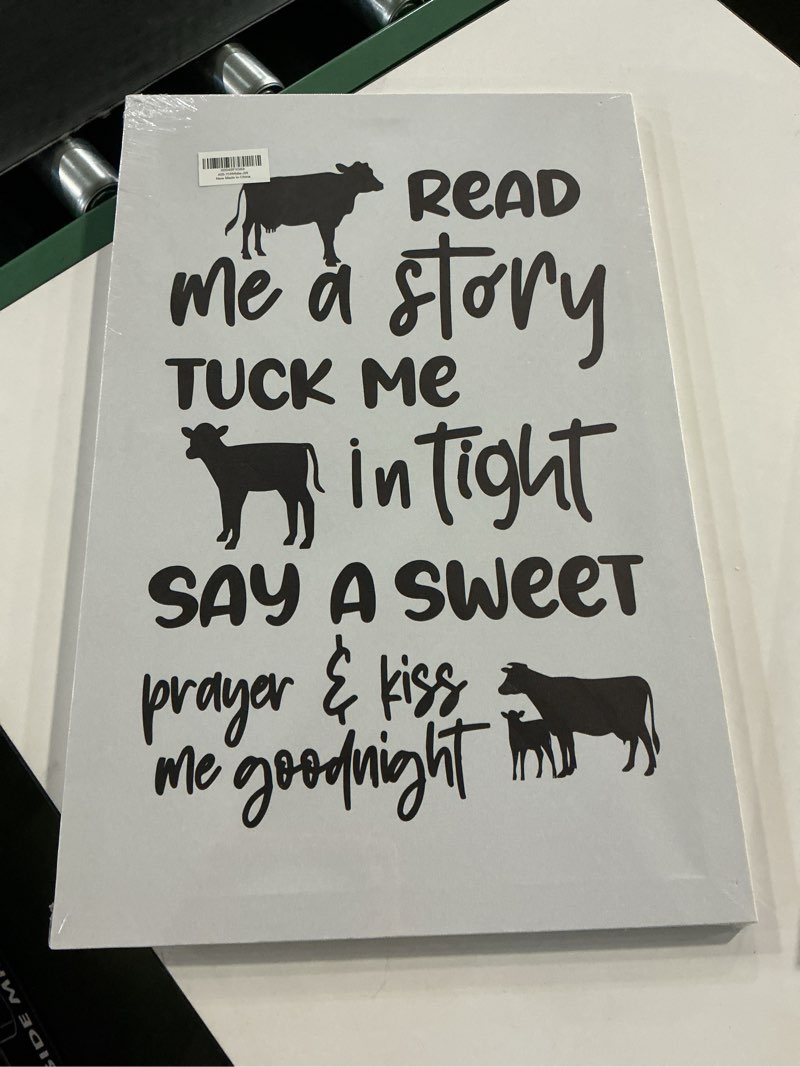 New Made in China
READ
me a story
TUCK Me
in tight
SAY A SWeeT
prayer & kiss
me goodnight
SIDE